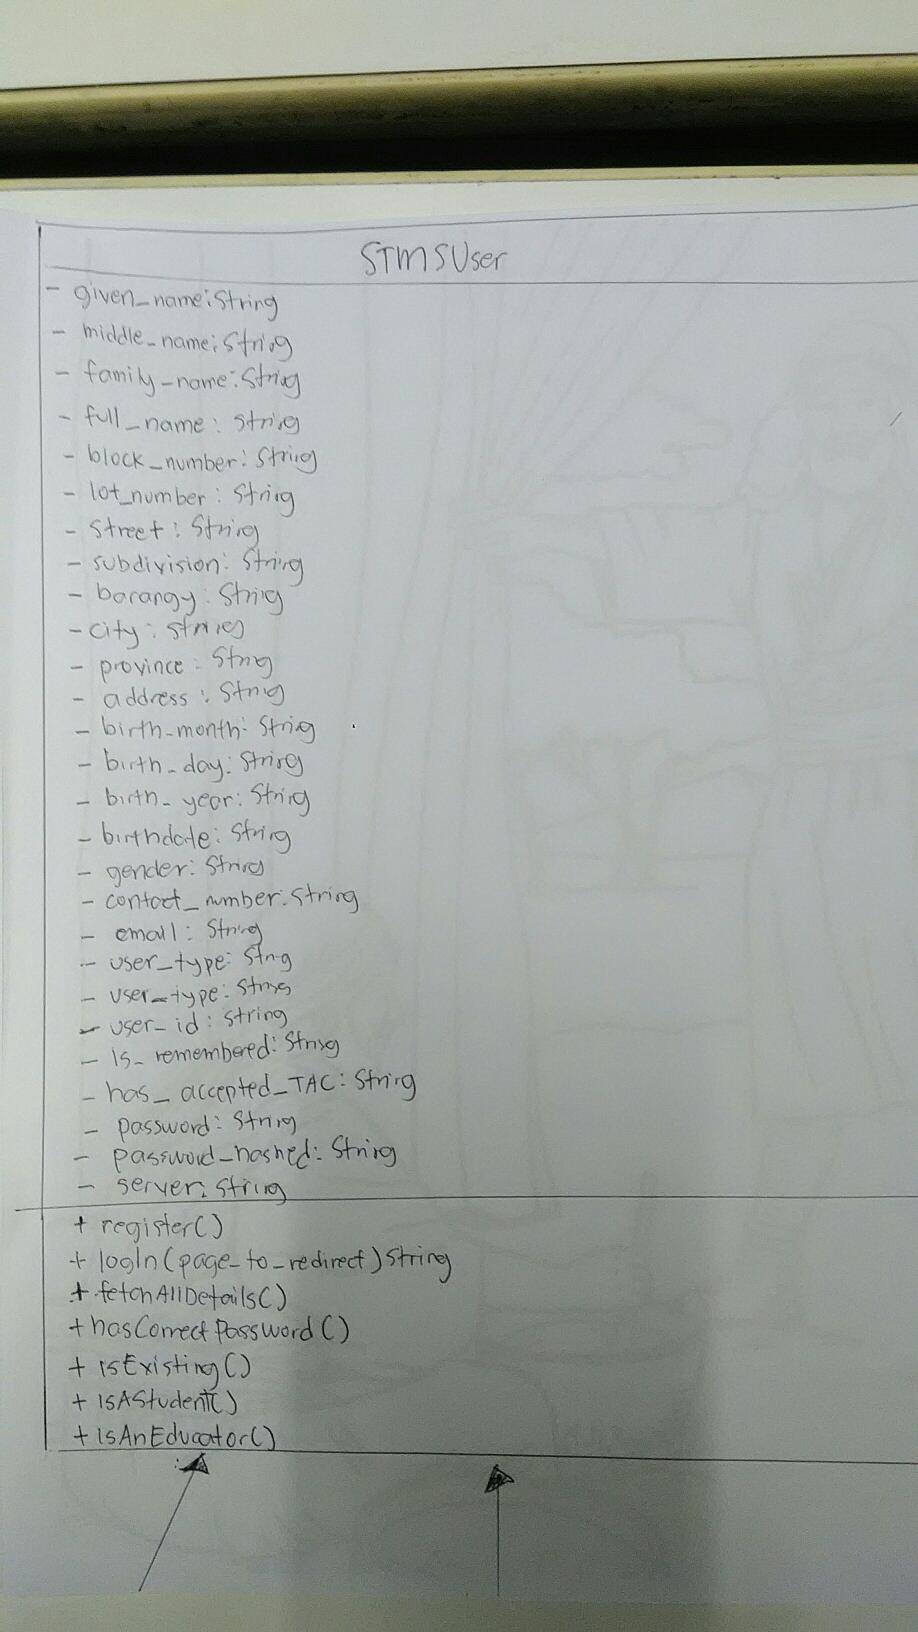 STMSUser
- given_name: String
- middle_name: String
- family_name: String
- full_name: String
- block_number: String
- lot_number: String
- street: String
- subdivision: String
- barangy: String
- city: String
- province: String
- address: String
- birth_month: String
- birth_day: String
- birth_year: String
- birthdate: String
- gender: String
- contact_number: String
- email: String
- user_type: String
- user_type: String
- user_id: String
- is_remembered: String
- has_accepted_TAC: String
- password: String
- password_hashed: String
- server: String
+ register()
+ logIn(page_to_redirect)String
+ fetchAllDetails()
+ hasCorrectPassword()
+ isExisting()
+ isAStudent()
+ isAnEducator()